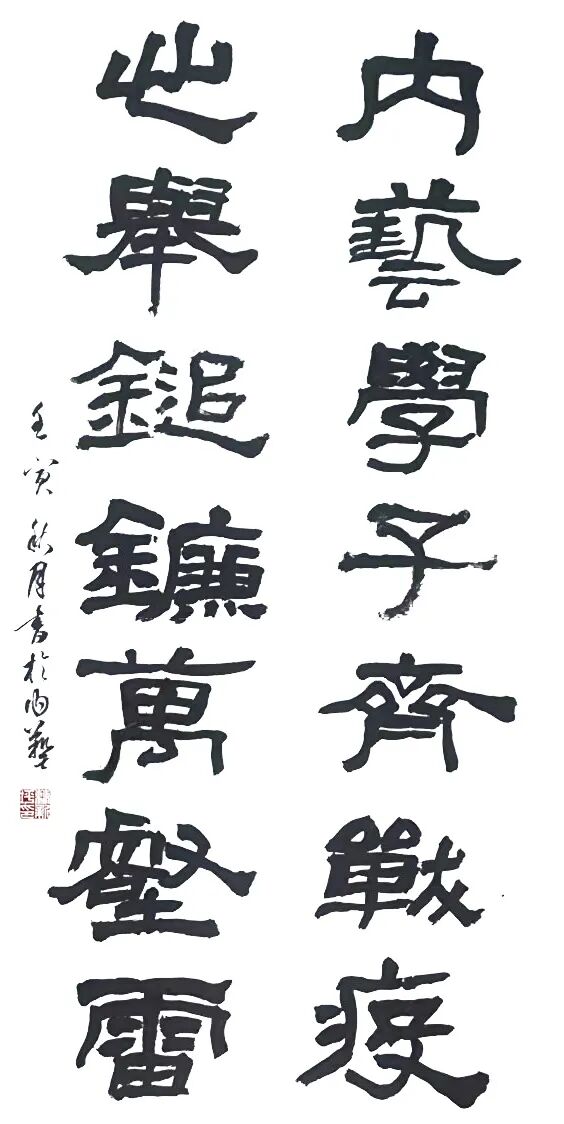 内藝學子齊戰疫
舉鎚鐮萬壑雷
壬寅秋月書於内藝